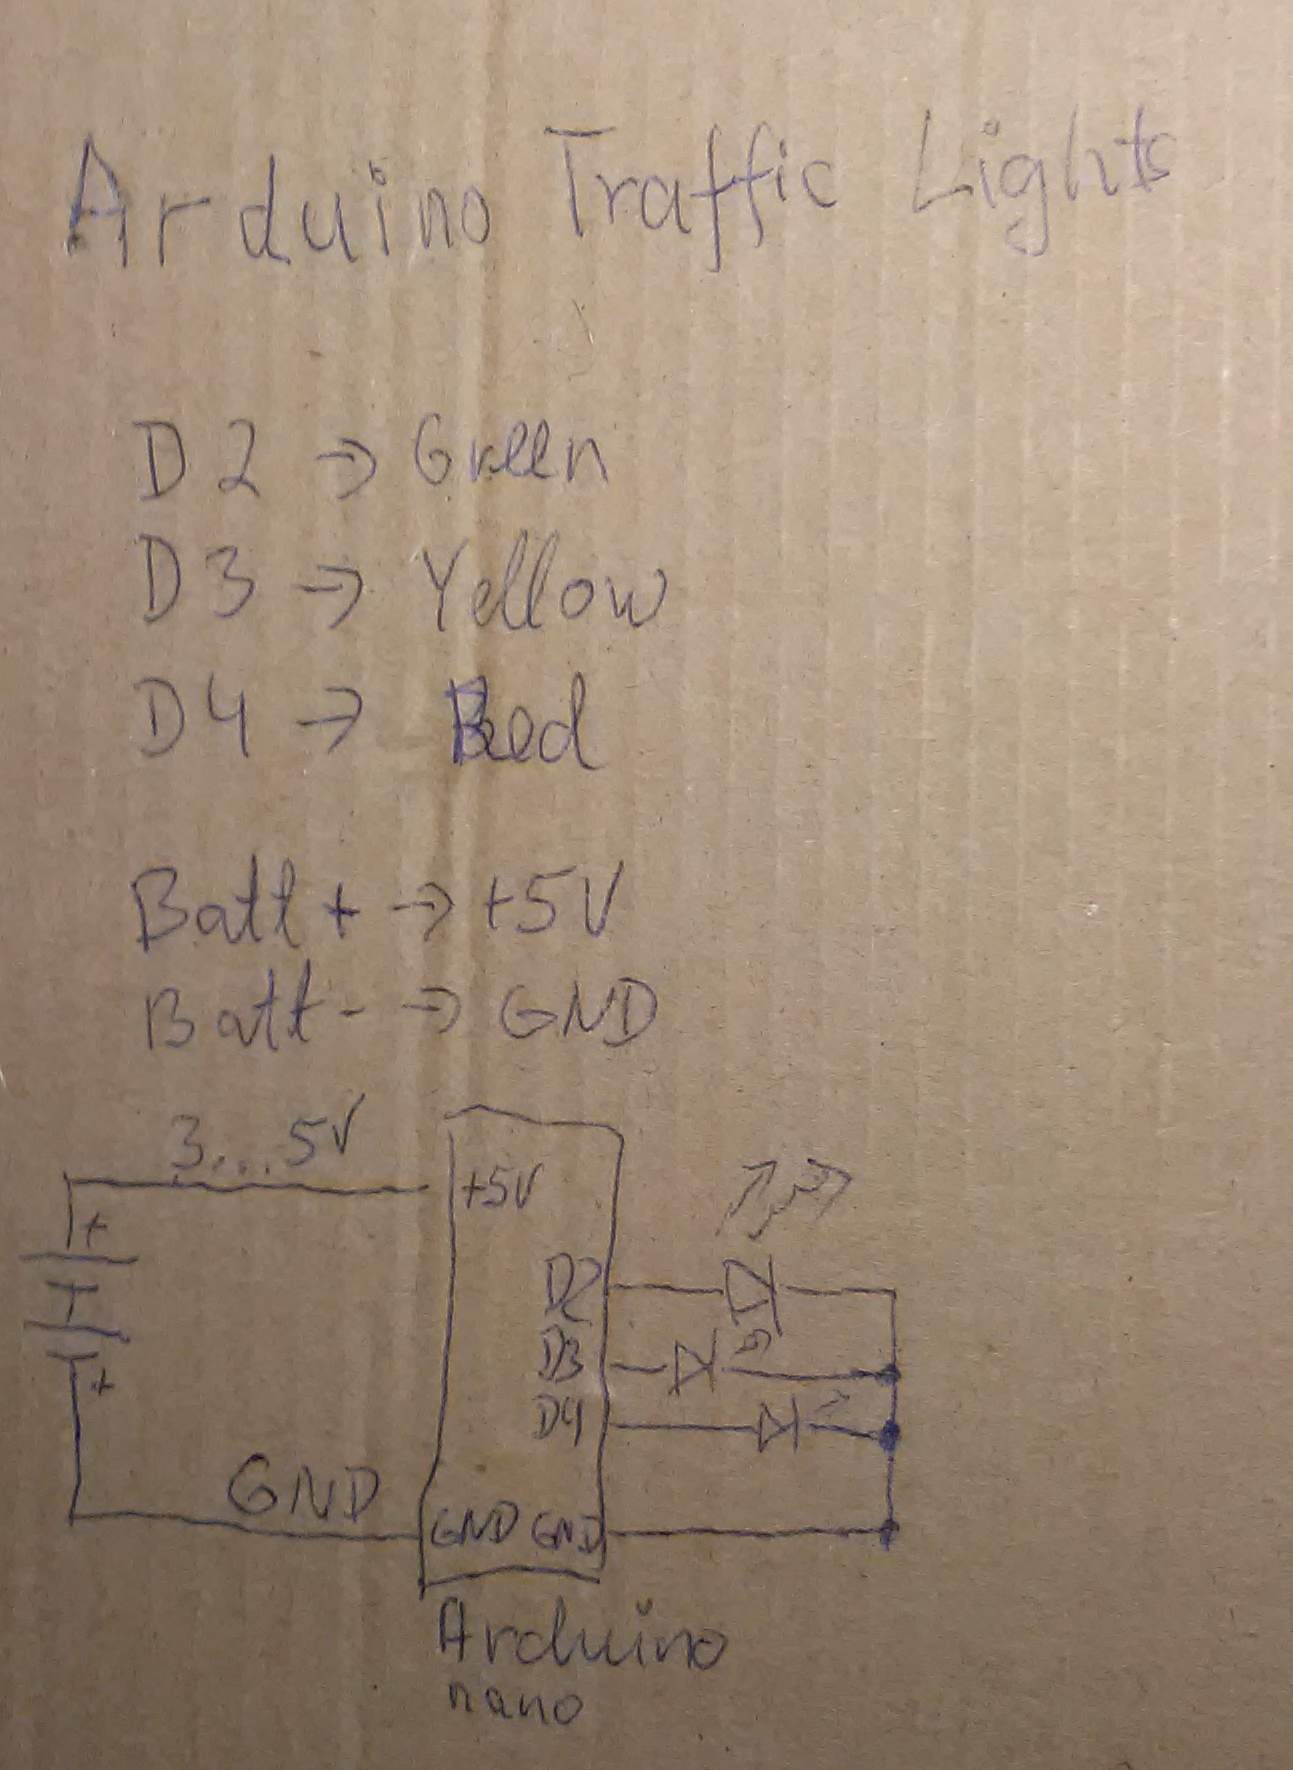 Arduino Traffic Lights
D2 → Green
D3 → Yellow
D4 → Red
Batt + → +5V
Batt - → GND
3...5V
+5V
+
D2
D3
D4
+
GND
GND GND
Arduino
nano